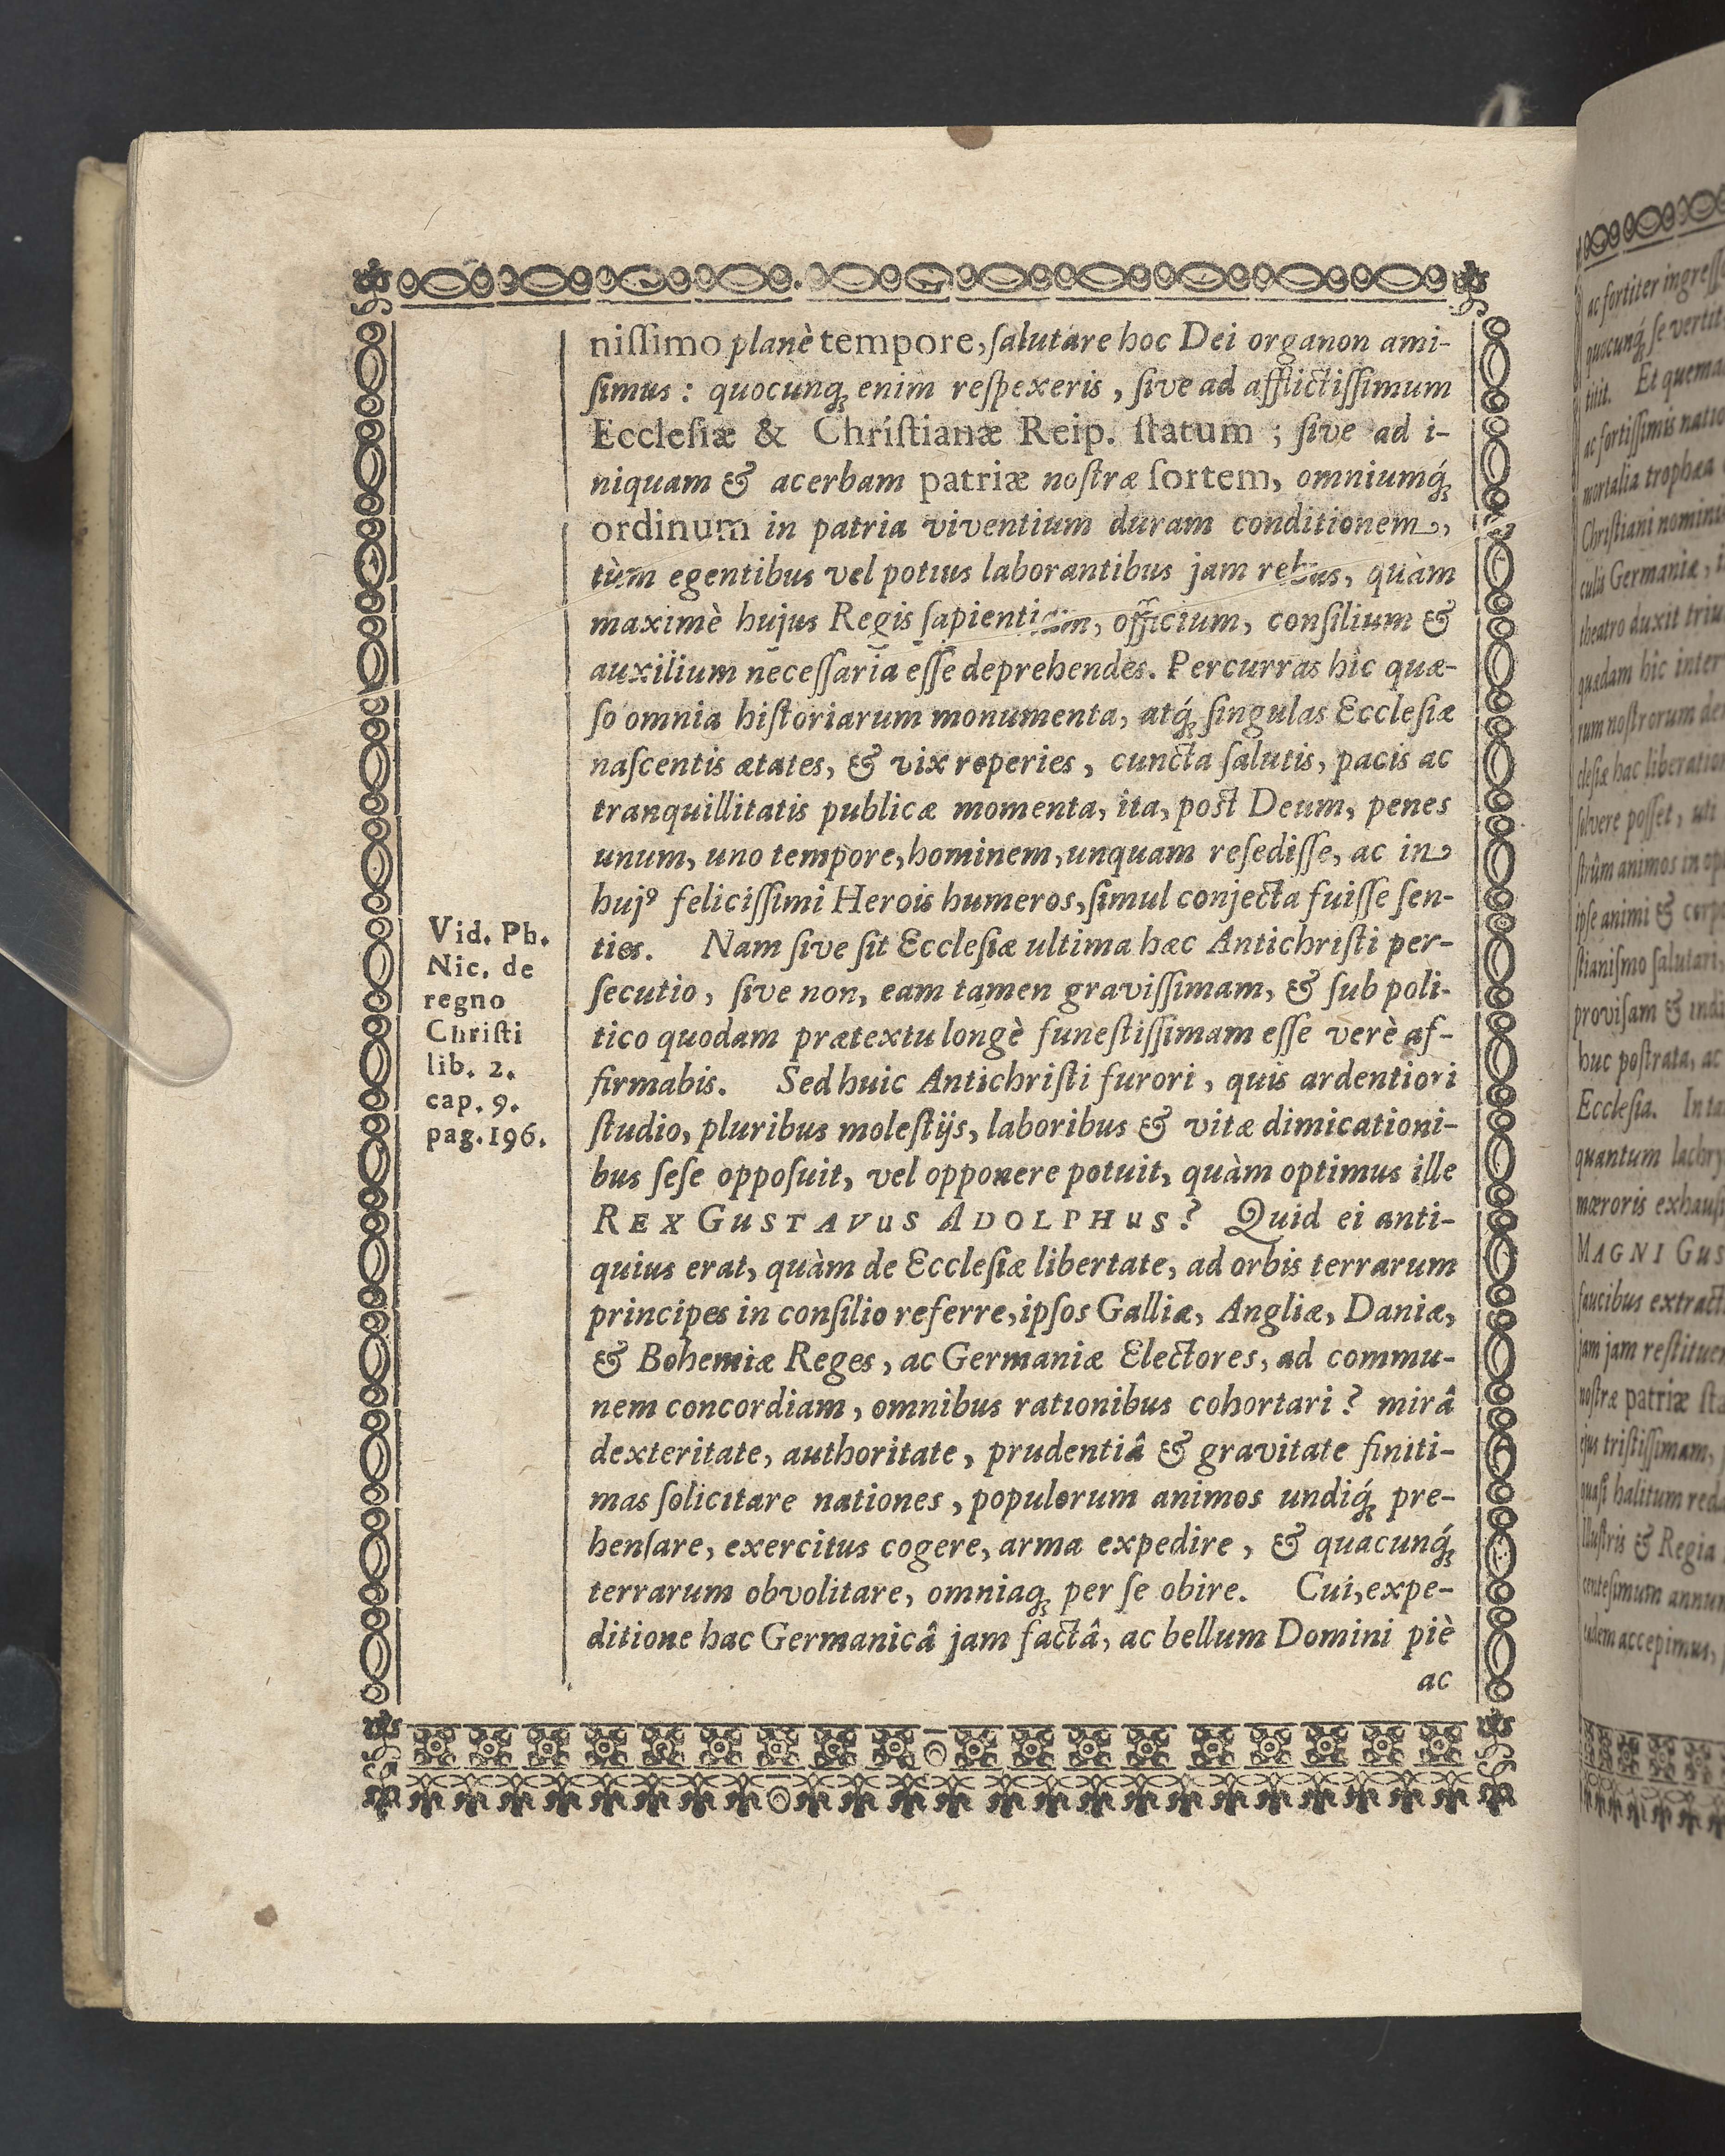 niſſimo planè tempore, ſalutare hoc Dei organon ami-
ſimus: quocunq́; enim reſpexeris, ſive ad afflictiſſimum
Eccleſiæ & Chriſtianæ Reip. ſtatum; ſive ad i-
niquam & acerbam patriæ noſtræ ſortem, omniumq́;
ordinum in patria viventium duram conditionem,
tùm egentibus vel potius laborantibus jam rebus, quàm
maximè hujus Regis ſapientiam, officium, conſilium &
auxilium neceſſaria eſſe deprehendes. Percurras hîc quæ-
ſo omnia hiſtoriarum monumenta, atq́; ſingulas Eccleſiæ
naſcentis ætates, & vix reperies, cuncta ſalutis, pacis ac
tranquillitatis publicæ momenta, ita, poſt Deum, penes
unum, uno tempore, hominem, unquam reſediſſe, ac in
hujꝰ feliciſſimi Herois humeros, ſimul conjecta fuiſſe ſen-
ties. Nam ſive ſit Eccleſiæ ultima hæc Antichriſti per-
ſecutio, ſive non, eam tamen graviſſimam, & ſub poli-
tico quodam prætextu longè funeſtiſſimam eſſe verè af-
firmabis. Sed huic Antichriſti furori, quis ardentiori
ſtudio, pluribus moleſtijs, laboribus & vitæ dimicationi-
bus ſeſe oppoſuit, vel opponere potuit, quàm optimus ille
REX GUSTAVUS ADOLPHUS? Quid ei anti-
quius erat, quàm de Eccleſiæ libertate, ad orbis terrarum
principes in conſilio referre, ipſos Galliæ, Angliæ, Daniæ,
& Bohemiæ Reges, ac Germaniæ Electores, ad commu-
nem concordiam, omnibus rationibus cohortari? mirâ
dexteritate, authoritate, prudentiâ & gravitate finiti-
mas ſolicitare nationes, populorum animos undiq́; pre-
henſare, exercitus cogere, arma expedire, & quacunq́;
terrarum obvolitare, omniaq́; per ſe obire. Cui, expe-
ditione hac Germanicâ jam factâ, ac bellum Domini piè
ac
Vid. Ph.
Nic. de
regno
Chriſti
lib. 2.
cap. 9.
pag. 196.
ac fortiter
quocunq́; ſe
Et
ac fortiſſimis
mortalia trophæa
Chriſtiani
Germaniæ,
theatro duxit
quædam hic
noſtrorum
hac
ſolvere poſſet, uti
animos in
ipſe animi &
ſalutari,
proviſam &
huc
Eccleſia. In
quantum
mœroris
MAGNI GUS
faucibus
jam jam
noſtræ patriæ
triſtiſſimam,
quaſi halitum
& Regia
annum
accepimus,